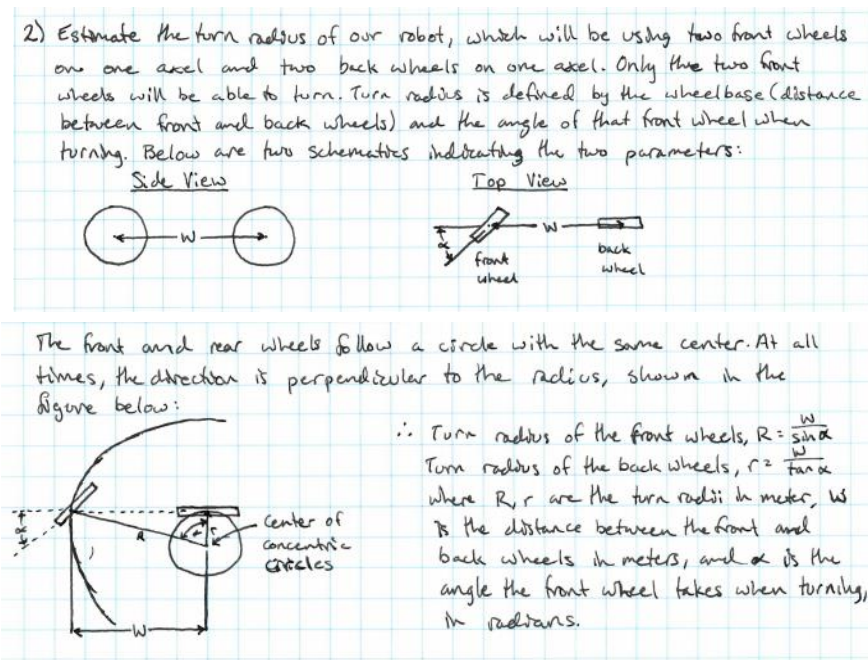 2) Estimate the turn radius of our robot, which will be using two front wheels
on one axel and two back wheels on one axel. Only the two front
wheels will be able to turn. Turn radius is defined by the wheelbase (distance
between front and back wheels) and the angle of that front wheel when
turning. Below are two schematics indicating the two parameters:
Side View
Top View
W
W
α
front
wheel
back
wheel
The front and rear wheels follow a circle with the same center. At all
times, the direction is perpendicular to the radius, shown in the
figure below:
∴ Turn radius of the front wheels, R = W/sin α
Turn radius of the back wheels, r = W/tan α
where R, r are the turn radii in meter, W
is the distance between the front and
back wheels in meters, and α is the
angle the front wheel takes when turning,
in radians.
α
R
α
r
center of
concentric
circles
W